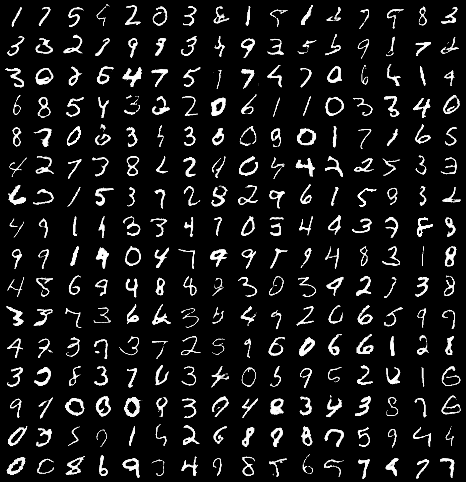 1 7 5 4 2 0 3 8 1 5 1 2 7 9 8 3
3 3 2 1 9 9 3 4 9 3 5 6 9 1 7 2
3 0 2 5 4 7 5 1 7 4 7 0 6 4 1 9
6 8 5 4 3 2 2 0 6 1 1 0 3 3 4 0
8 7 0 6 3 4 3 8 0 9 0 1 7 1 6 5
4 2 7 3 8 2 2 9 0 4 4 2 2 5 3 3
6 3 1 5 3 7 2 8 2 9 6 1 5 8 3 2
4 9 1 1 3 3 4 7 0 3 4 4 3 7 8 8
9 9 1 9 0 4 7 9 9 5 9 4 8 3 1 8
4 8 6 9 4 8 8 9 3 0 3 9 2 1 3 8
3 3 7 3 6 6 3 5 4 9 2 0 6 5 9 9
4 2 3 7 3 7 2 5 9 6 0 6 6 1 2 8
3 0 8 3 7 6 3 4 0 5 9 5 2 4 1 6
9 7 0 0 0 8 3 9 4 8 3 4 3 8 7 6
0 3 5 9 1 5 2 6 8 9 8 7 5 9 4 4
0 0 8 6 9 3 4 9 8 5 6 5 7 4 7 7